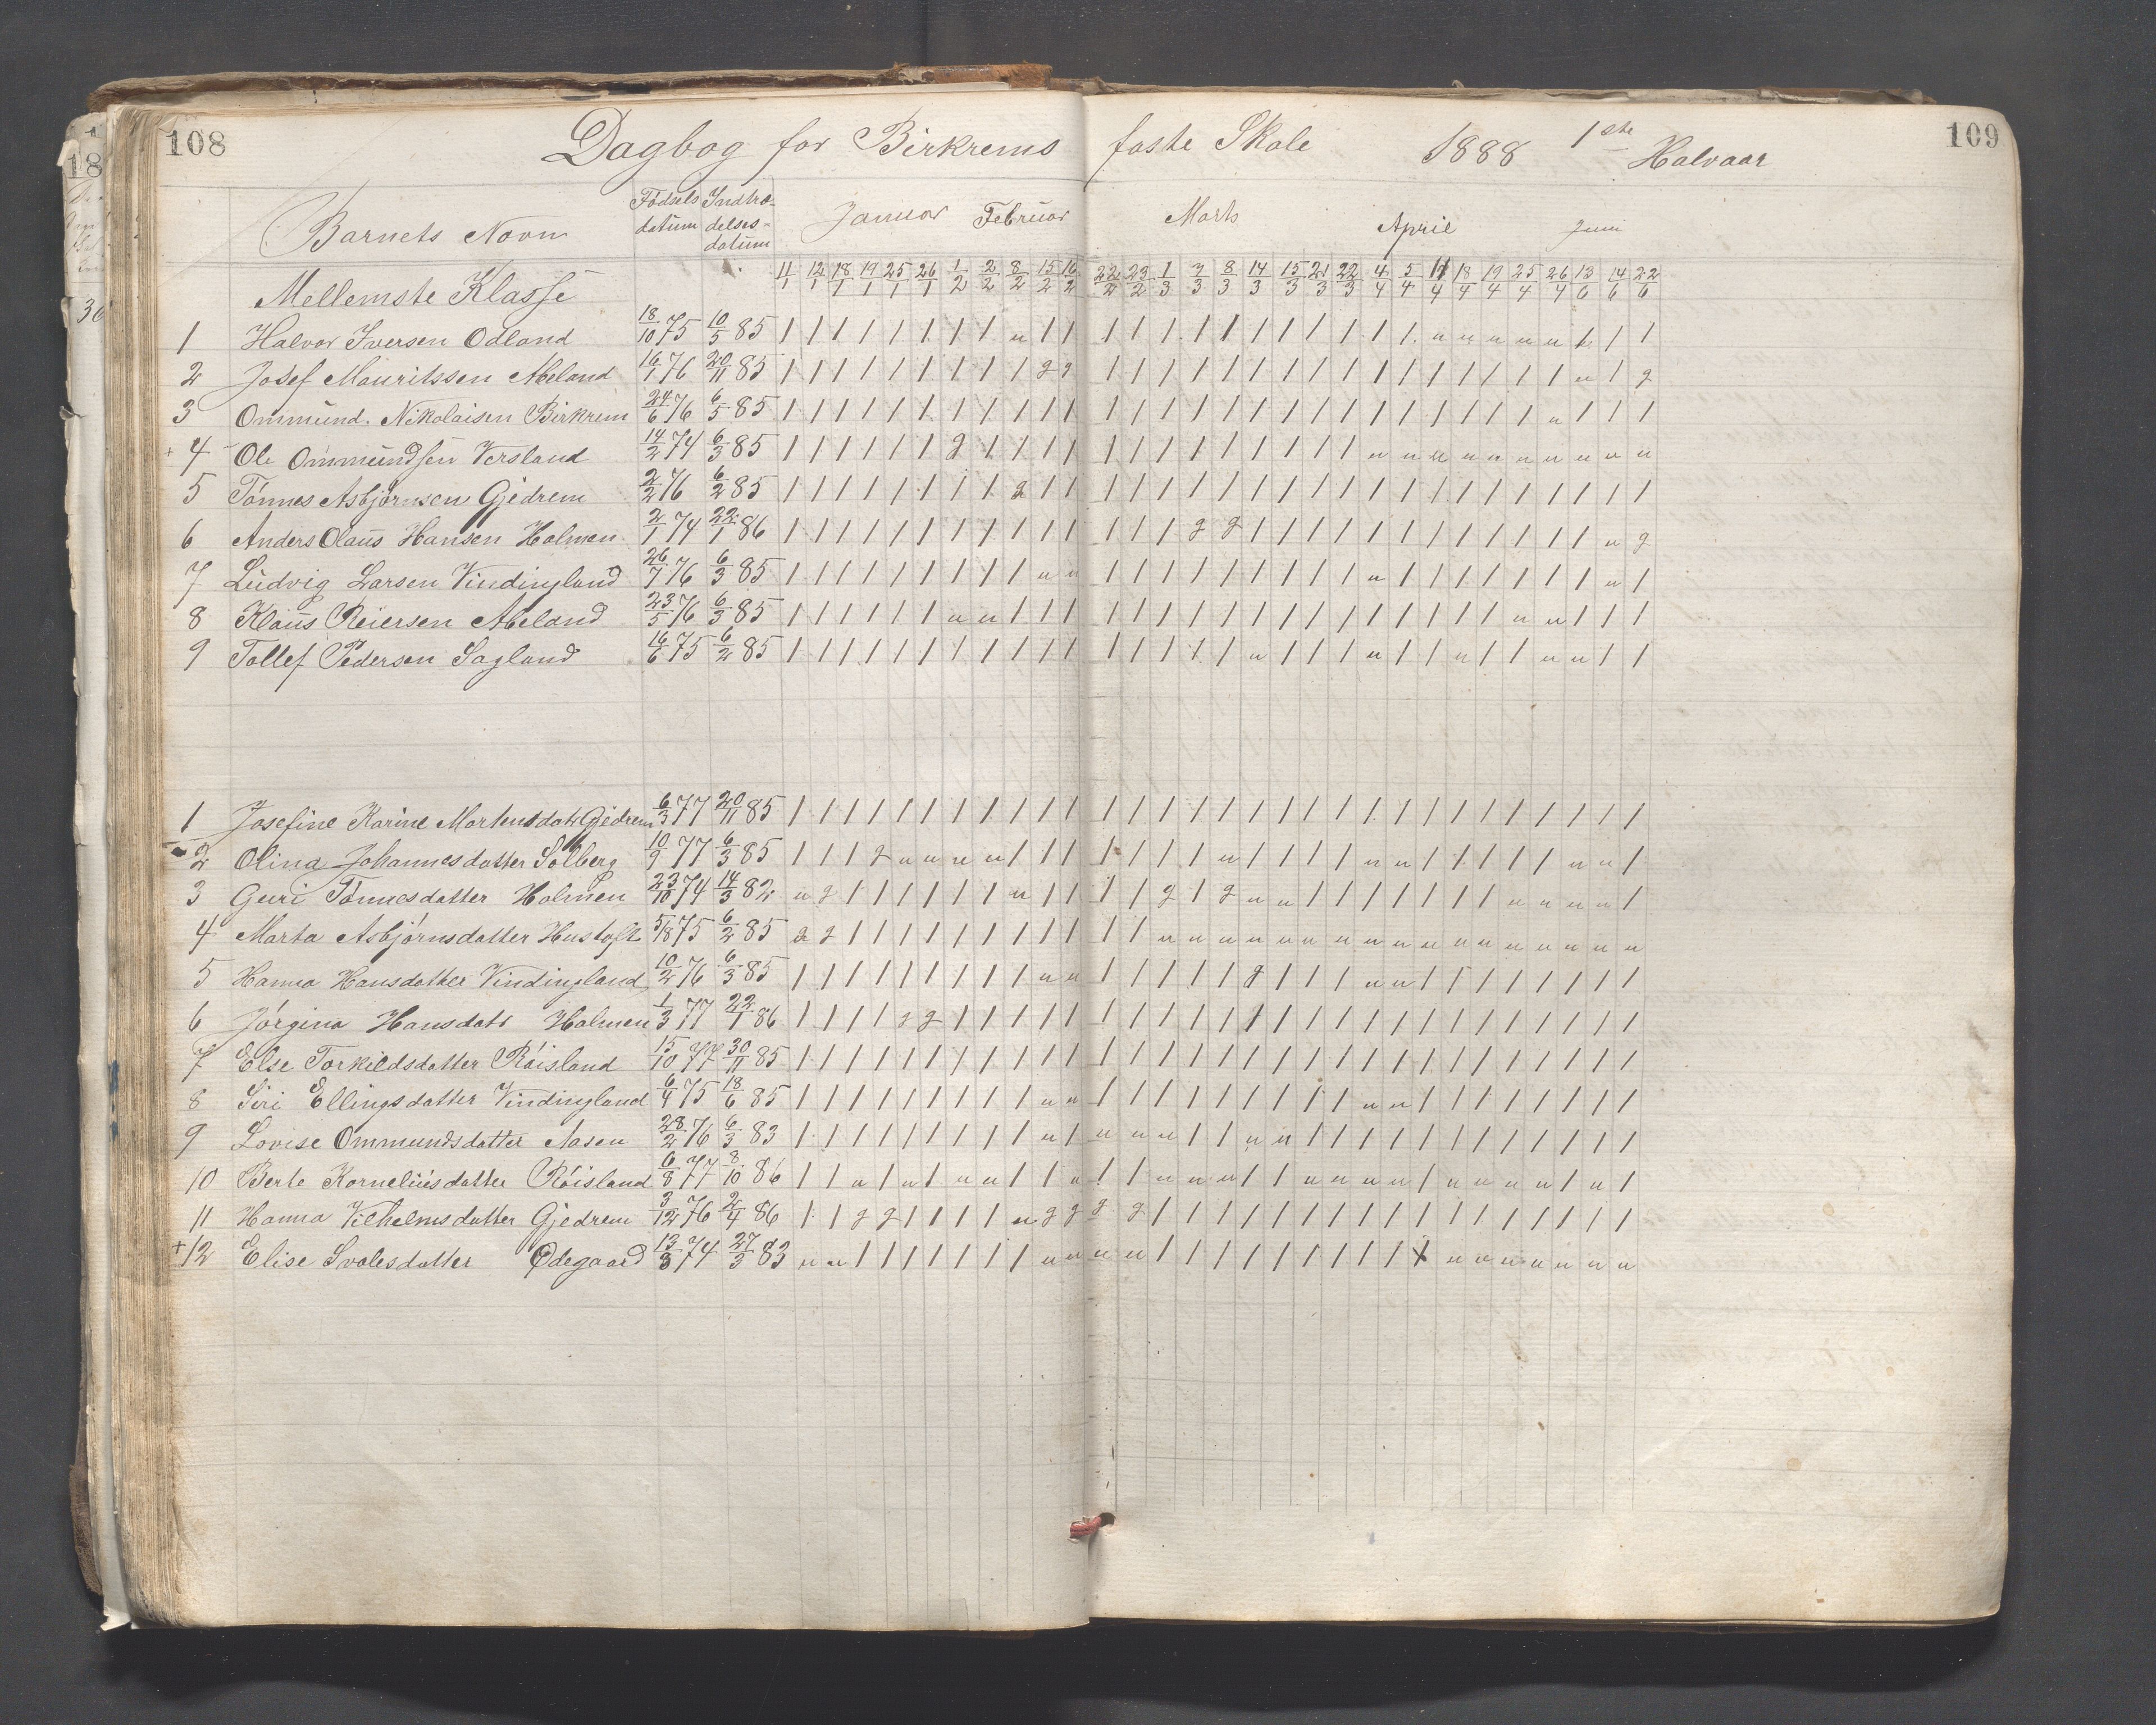 108 Dagbog for Birkrems faste Skole 1888 1ste Halvaar 109
Barnets Navn Fødsels datum Indtrædelses-datum Januar Februar Marts April Juni
Mellemste Klasse 11/1 12/1 18/1 19/1 25/1 26/1 1/2 2/2 8/2 15/2 16/2 22/2 23/2 1/3 7/3 8/3 14/3 15/3 21/3 22/3 4/4 5/4 11/4 18/4 19/4 25/4 26/4 13/6 14/6 22/6
1 Halvor Iversen Odland 18/10 75 10/5 85 / / / / / / / / u / / / / / / / / / / / / / u u u u u u / /
2 Josef Mauritssen Abeland 16/1 76 20/11 85 / / / / / / / / / g g / / / / / / / / / / / / / / / / u / g
3 Ommund Nikolaisen Birkrem 24/6 76 6/5 85 / / / / / / / / / / / / / / / / / / / / / / / / / / u / / /
+ 4 Ole Ommundsen Versland 14/2 74 6/3 85 / / / / / / g / / / / / / / / / / / / / u u u u u u u u u u
5 Tønnes Asbjørnsen Gjedrem 2/2 76 6/2 85 / / / / / / / / g / / / / / / / / / / / / / / / / / / / / /
6 Anders Olaus Hansen Holmen 2/1 74 22/1 86 / / / / / / / / / / / / / / g g / / / / / / / / / / / / u g
7 Ludvig Larsen Vindingland 26/7 76 6/3 85 / / / / / / / / / u u / / / / / / / / / u / / / / / / / u /
8 Klaus Reiersen Abeland 23/5 76 6/3 85 / / / / / / u u / / / / / / / / / / / / / / / / / u u / / /
9 Tollef Pedersen Sagland 16/6 75 6/2 85 / / / / / / / / / / / / / / / / u / / / u / / u / / u u / /
1 Josefine Karine Martensdatr Gjedrem 6/3 77 20/11 85 / / / / / / / / / / / / / / / / / / / / / / / / / / / / / /
2 Olina Johannesdatter Solberg 10/9 77 6/3 85 / / / g u u u u / / / / / / / u / / / / u u / / / / / u u /
3 Guri Tønnesdatter Holmen 23/10 74 14/3 82 u g / / / / / / u / / / / g / g u u / / / / / / / u u u u /
4 Marta Asbjørnsdatter Hustoft 5/8 75 6/2 85 g g / / / / / / / / / / / u u u u u u u u u u u u u u u u u
5 Hanna Hansdatter Vindingland 10/2 76 6/3 85 / / / / / / / / / u u / / / / / g / / / u u / / / / / / / /
6 Jørgina Hansdatr Holmen 1/3 77 22/1 86 / / / / g g / / / / / / / / / / / / / / / / / / / / / / / /
7 Else Torkildsdatter Røisland 15/10 77 30/11 85 / / / / / / / / / / / / / / / / / / / / / / / / / / / / / /
8 Siri Ellingsdatter Vindingland 6/4 75 18/6 85 / / / / / / / / / u u / / / / / / / / / u u / / / / / / / /
9 Lovise Ommundsdatter Aasen 28/2 76 6/3 83 / / / / / / / / / u / u u u / / u u / / / / / / / / / / / /
10 Berte Korneliusdatter Røisland 6/8 77 8/10 86 / / u / u / u u / / u / / u u u / / u u u u / u u u u / u /
11 Hanna Vilhelmsdatter Gjedrem 3/12 76 2/4 86 / / g g / / / / u g g g g / / / / / / / / / / / / / / / / /
+12 Elise Svalesdatter Ødegaard 13/8 74 27/3 83 u u / / / / / / / u u u u / / / / / / / / / / u u u u u u u